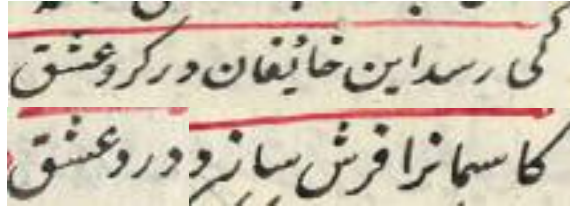 کی رسد این خائفان در کرد عشق
کاسمانرا فرش سازد درد عشق